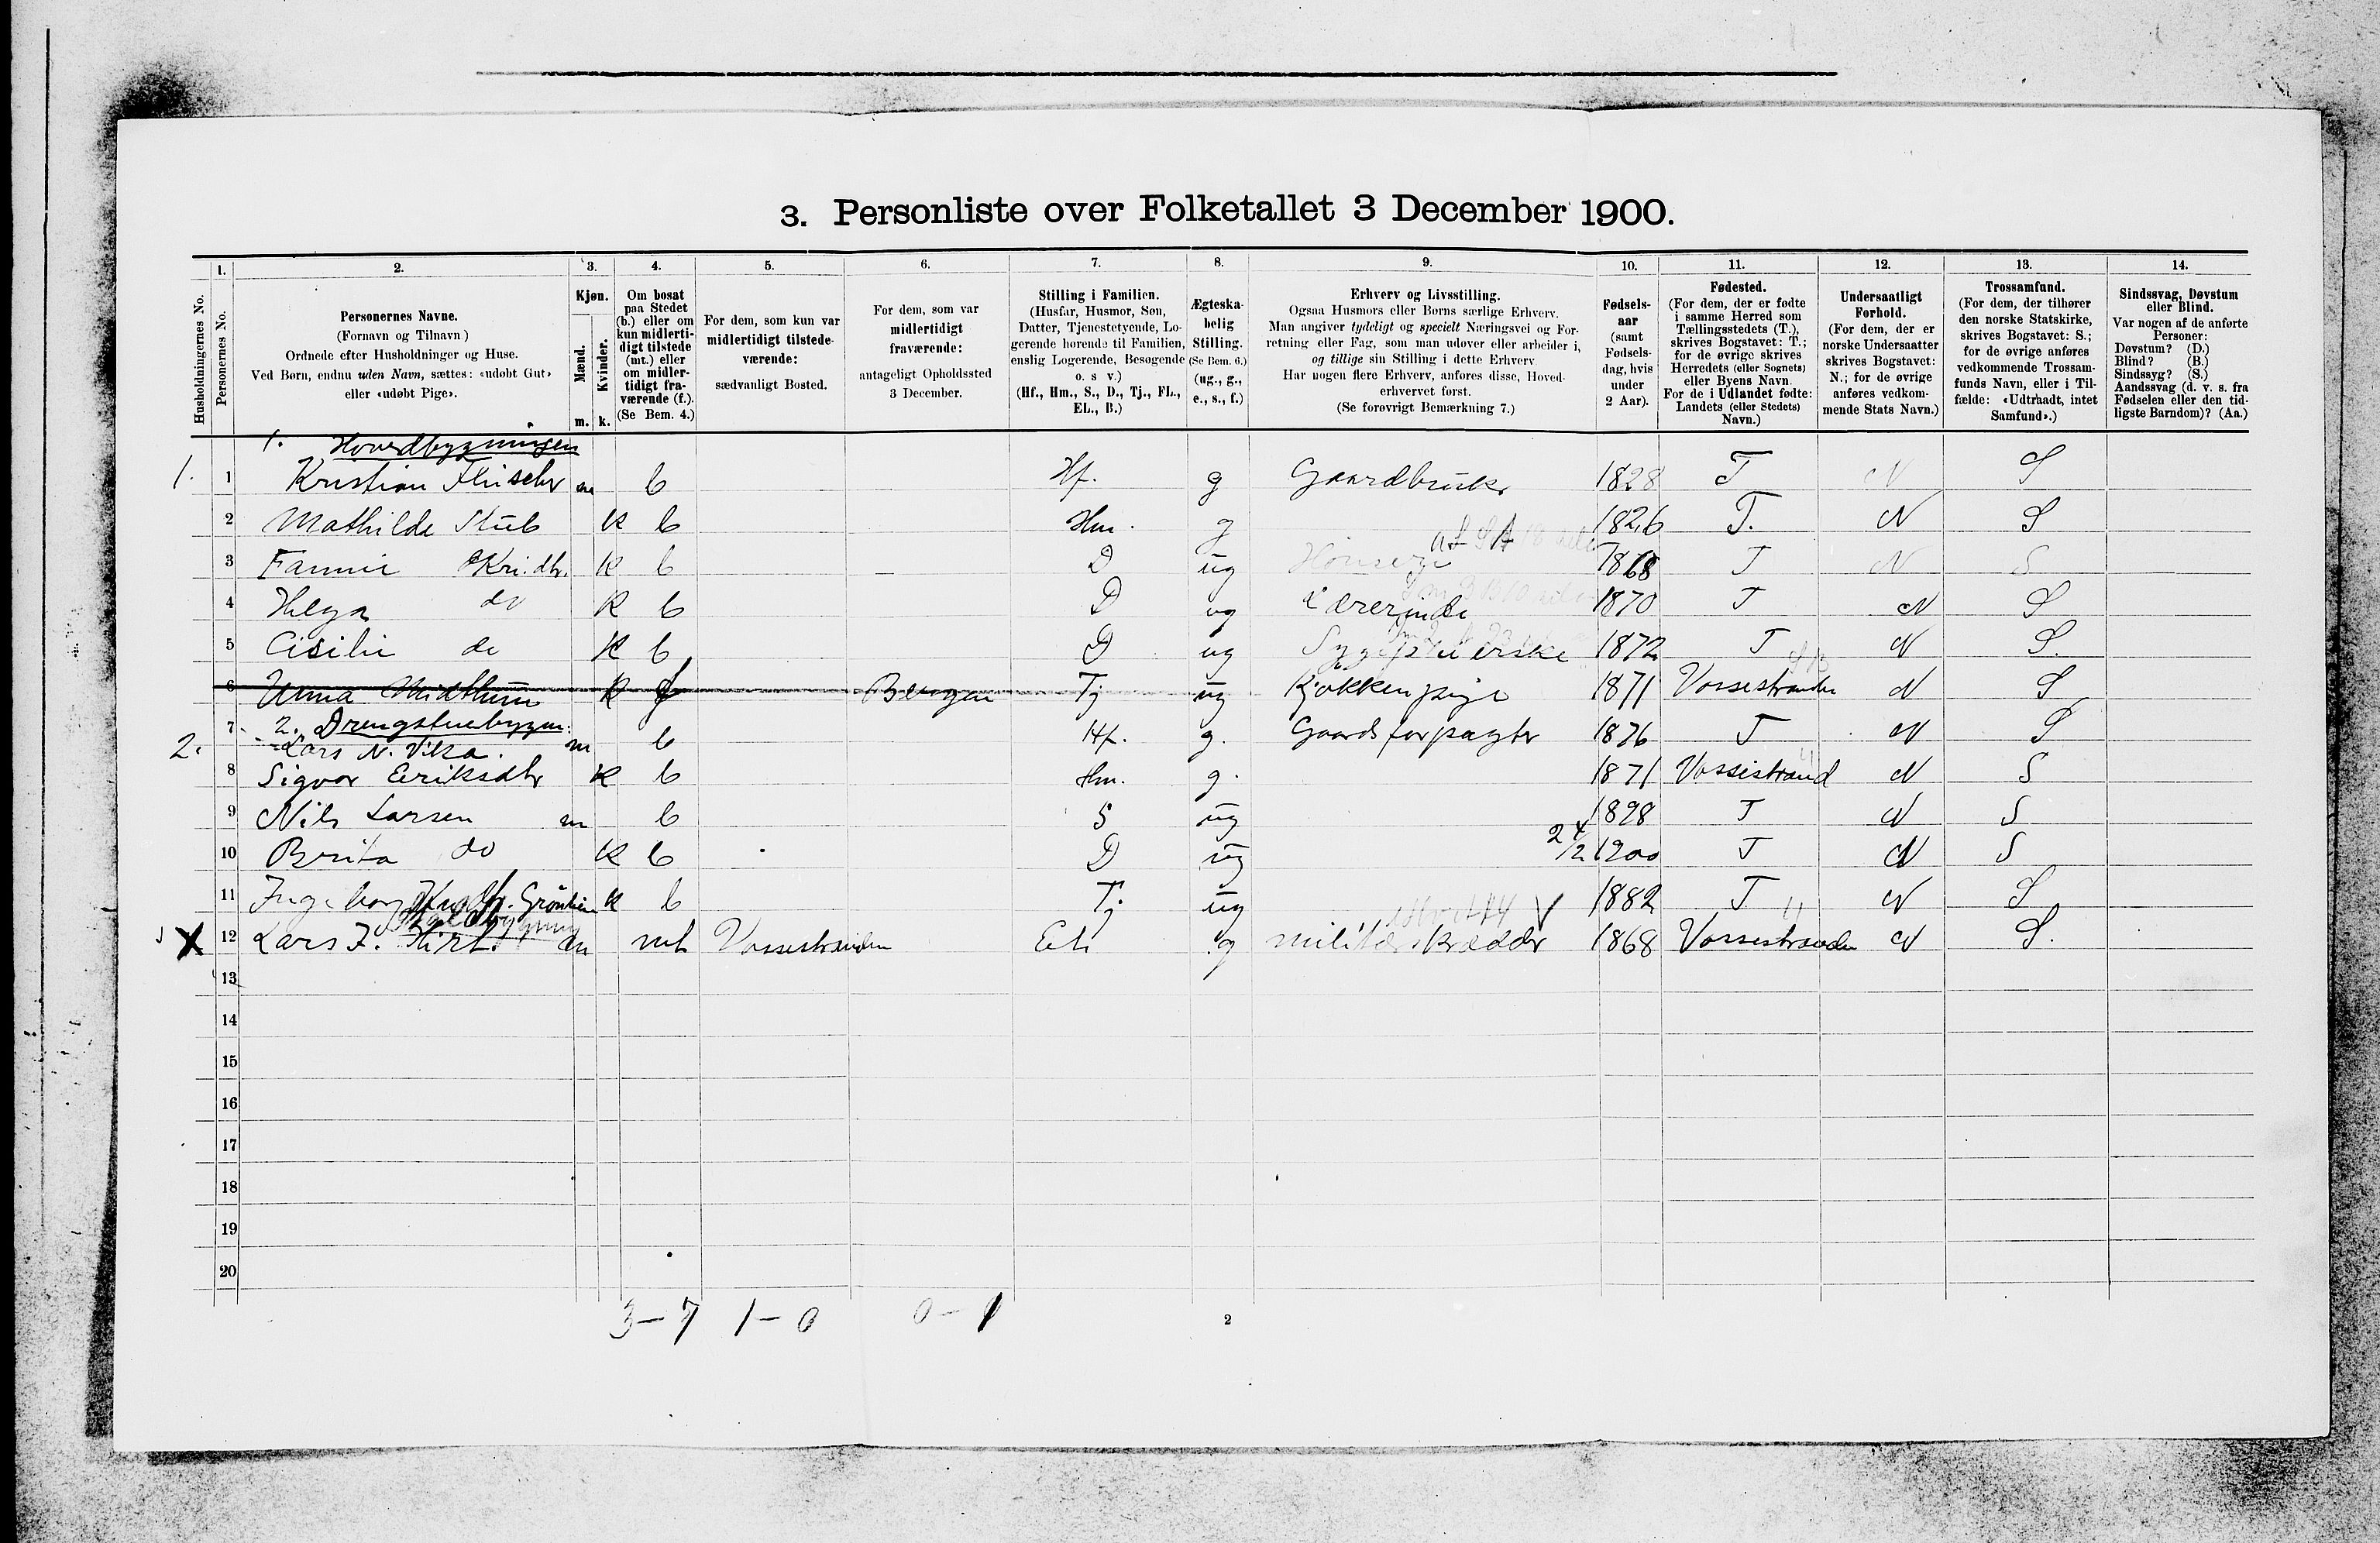 3. Personliste over Folketallet 3 December 1900.
1. 2. 3. 4. 5. 6. 7. 8. 9. 10. 11. 12. 13. 14.
Husholdningernes No.
Personernes No.
Personernes Navne.
(Fornavn og Tilnavn)
Ordnede efter Husholdninger og Huse.
Ved Børn, endnu uden Navn, sættes: «udøbt Gut»
eller «udøbt Pige».
Kjøn.
Mænd.
Kvinder.
m. k.
Om bosat
paa Stedet
(b.) eller om
kun midlerti-
digt tilstede
(mt.) eller
om midler-
tidigt fra-
værende (f.).
(Se Bem. 4.)
For dem, som kun var
midlertidigt tilstede-
værende:
sædvanligt Bosted.
For dem, som var
midlertidigt
fraværende:
antageligt Opholdssted
3 December.
Stilling i Familien.
(Husfar, Husmor, Søn,
Datter, Tjenestetyende, Lo-
gerende hørende til Familien,
enslig Logerende, Besøgende
o. s v.)
(Hf., Hm., S., D., Tj., FL.,
EL., B.)
Ægteska-
belig
Stilling.
(Se Bem. 6.)
(ug., g.,
e., s., f.)
Erhverv og Livsstilling.
Ogsaa Husmors eller Børns særlige Erhverv.
Man angiver tydeligt og specielt Næringsvei og For-
retning eller Fag, som man udøver eller arbeider i,
og tillige sin Stilling i dette Erhverv
Har nogen flere Erhverv, anføres disse, Hoved-
erhvervet først.
(Se forøvrigt Bemærkning 7.)
Fødsels-
aar
(samt
Fødsels-
dag, hvis
under
2 Aar).
Fødested.
(For dem, der er fødte
i samme Herred som
Tællingsstedets (T.),
skrives Bogstavet: T.;
for de øvrige skrives
Herredets (eller Sognets)
eller Byens Navn.
For de i Udlandet fødte:
Landets (eller Stedets)
Navn.)
Undersaatligt
Forhold.
(For dem, der er
norske Undersaatter
skrives Bogstavet:
N.; for de øvrige
anføres vedkom-
mende Stats Navn.)
Trossamfund.
(For dem, der tilhører
den norske Statskirke,
skrives Bogstavet: S.;
for de øvrige anføres
vedkommende Trossam-
funds Navn, eller i Til-
fælde: «Udtraadt, intet
Samfund».)
Sindssvag, Døvstum
eller Blind.
Var nogen af de anførte
Personer:
Døvstum? (D.)
Blind? (B.)
Sindssyg? (S.)
Aandssvag (d. v. s. fra
Fødselen eller den tid-
ligste Barndom)? (Aa.)
1. Hovedbygningen
1. 1 Kristian Fleischer m b Hf. g Gaardbruker 1828 T N S
2 Mathilde Stub k b Hm. g 1826 T. N S
3 Fannie Kri.dtr. k b D ug 1868 T N S
4 Helga do k b D ug Lærerinde 1870 T N S
5 Cisilie do k b D ug Sygepleierske 1872 T N S.
6 Anna Midthun k f Bergen Tj ug Kjøkkenpige 1871 Vossestranden N S
2. Drengstuebygn.
2. 7 Lars N. Vilsa. m b Hf. g. Gaardsforpagter 1876 T N S
8 Sigvor Eriksdtr k b Hm. g. 1871 Vossestrand N S
9 Nils Larsen m b S ug 1898 T N S
10 Brita do k b D ug 24/2 1900 T N S
11 Ingeborg k b Tj. ug 1882 T N S
X 12 Lars J. m mt Vossestranden g 1868 Vossestranden N S.
13
14
15
16
17
18
19
20
3-7 1-0 0-1
2